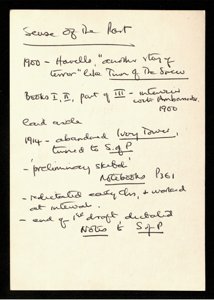 Sense of the Past
1900 – Howells, "another story of
terror" like Turn of The Screw
Books I, II, part of III – interview
with Ambassador.
1900
laid aside
1914 – abandoned Ivory Tower,
turned to S. of P
– 'preliminary sketch'
Notebooks P361
– redictated early chs, + worked
at interval.
– end of 1st draft dictated
Notes to S of P